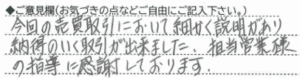 ◆ご意見欄(お気づきの点などご自由にご記入下さい。)
今回の売買取引において細かく説明があり
納得のいく取引が出来ました、担当営業様
の指導に感謝しております。